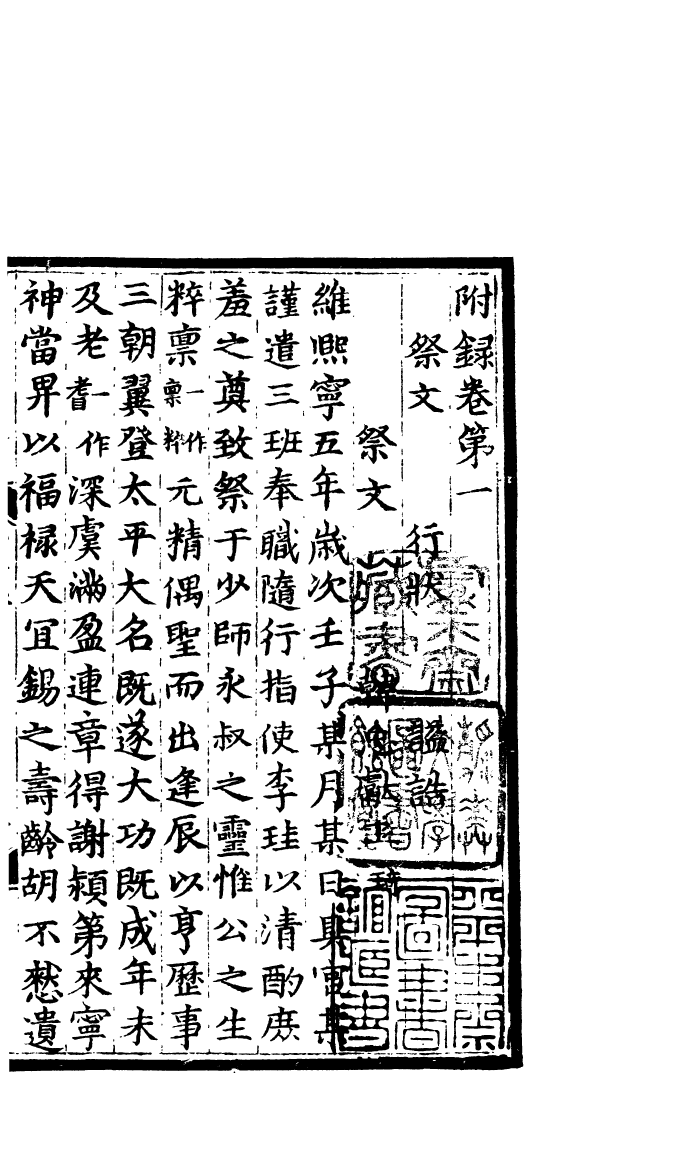 附録卷第一
祭文　行狀　謚誥
祭文　韓忠獻王琦
維熈寧五年歳次壬子某月某日具官某
謹遣三班奉職隨行指使李珪以清酌庶
羞之奠致祭于少師永叔之靈惟公之生
粹禀一作禀粹元精偶聖而出逢辰以亨歴事
三朝翼登太平大名既遂大功既成年未
及老一作耆深虞滿盈連章得謝潁第來寧
神當畀以福禄天宜錫之壽齡胡不憖遺